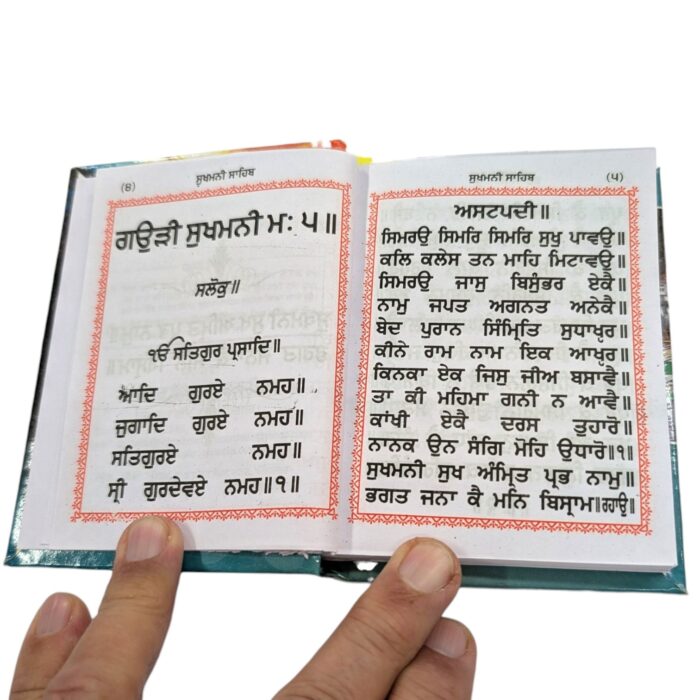 (੪) ਸੁਖਮਨੀ ਸਾਹਿਬ
ਗਉੜੀ ਸੁਖਮਨੀ ਮਃ ੫॥
ਸਲੋਕੁ॥
ੴ ਸਤਿਗੁਰ ਪ੍ਰਸਾਦਿ॥
ਆਦਿ ਗੁਰਏ ਨਮਹ॥
ਜੁਗਾਦਿ ਗੁਰਏ ਨਮਹ॥
ਸਤਿਗੁਰਏ ਨਮਹ॥
ਸ੍ਰੀ ਗੁਰਦੇਵਏ ਨਮਹ॥੧॥
ਸੁਖਮਨੀ ਸਾਹਿਬ (੫)
ਅਸਟਪਦੀ॥
ਸਿਮਰਉ ਸਿਮਰਿ ਸਿਮਰਿ ਸੁਖੁ ਪਾਵਉ॥
ਕਲਿ ਕਲੇਸ ਤਨ ਮਾਹਿ ਮਿਟਾਵਉ॥
ਸਿਮਰਉ ਜਾਸੁ ਬਿਸੁੰਭਰ ਏਕੈ॥
ਨਾਮੁ ਜਪਤ ਅਗਨਤ ਅਨੇਕੈ॥
ਬੇਦ ਪੁਰਾਨ ਸਿੰਮ੍ਰਿਤਿ ਸੁਧਾਖੵਰ॥
ਕੀਨੇ ਰਾਮ ਨਾਮ ਇਕ ਆਖੵਰ॥
ਕਿਨਕਾ ਏਕ ਜਿਸੁ ਜੀਅ ਬਸਾਵੈ॥
ਤਾ ਕੀ ਮਹਿਮਾ ਗਨੀ ਨ ਆਵੈ॥
ਕਾਂਖੀ ਏਕੈ ਦਰਸ ਤੁਹਾਰੋ॥
ਨਾਨਕ ਉਨ ਸੰਗਿ ਮੋਹਿ ਉਧਾਰੋ॥੧॥
ਸੁਖਮਨੀ ਸੁਖ ਅੰਮ੍ਰਿਤ ਪ੍ਰਭ ਨਾਮੁ॥
ਭਗਤ ਜਨਾ ਕੈ ਮਨਿ ਬਿਸ੍ਰਾਮ॥ਰਹਾਉ॥